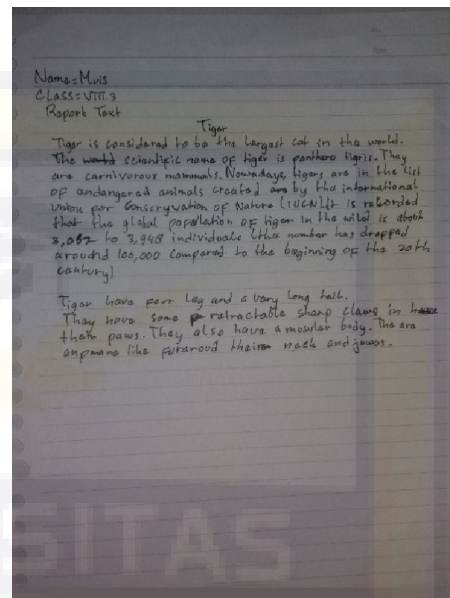 Name = Muis
Class = VIII.3
Report Text
Tiger
Tiger is considered to be the largest cat in the world.
The scientific name of tiger is panthera tigris. They
are carnivorous mammals. Nowadays, tigers are in the list
of endangered animals created by the international
union for Conservation of Nature (IUCN) It is recorded
that the global popellation of tiger in the wild is about
3,062 to 3,948 individuals (the number has dropped
around 100,000 compared to the beginning of the 20th
century)
Tiger have four Leg and a very long tail.
They have some retractable sharp claws in
their paws. They also have a body. The are
like neck and jawas.
SITAS